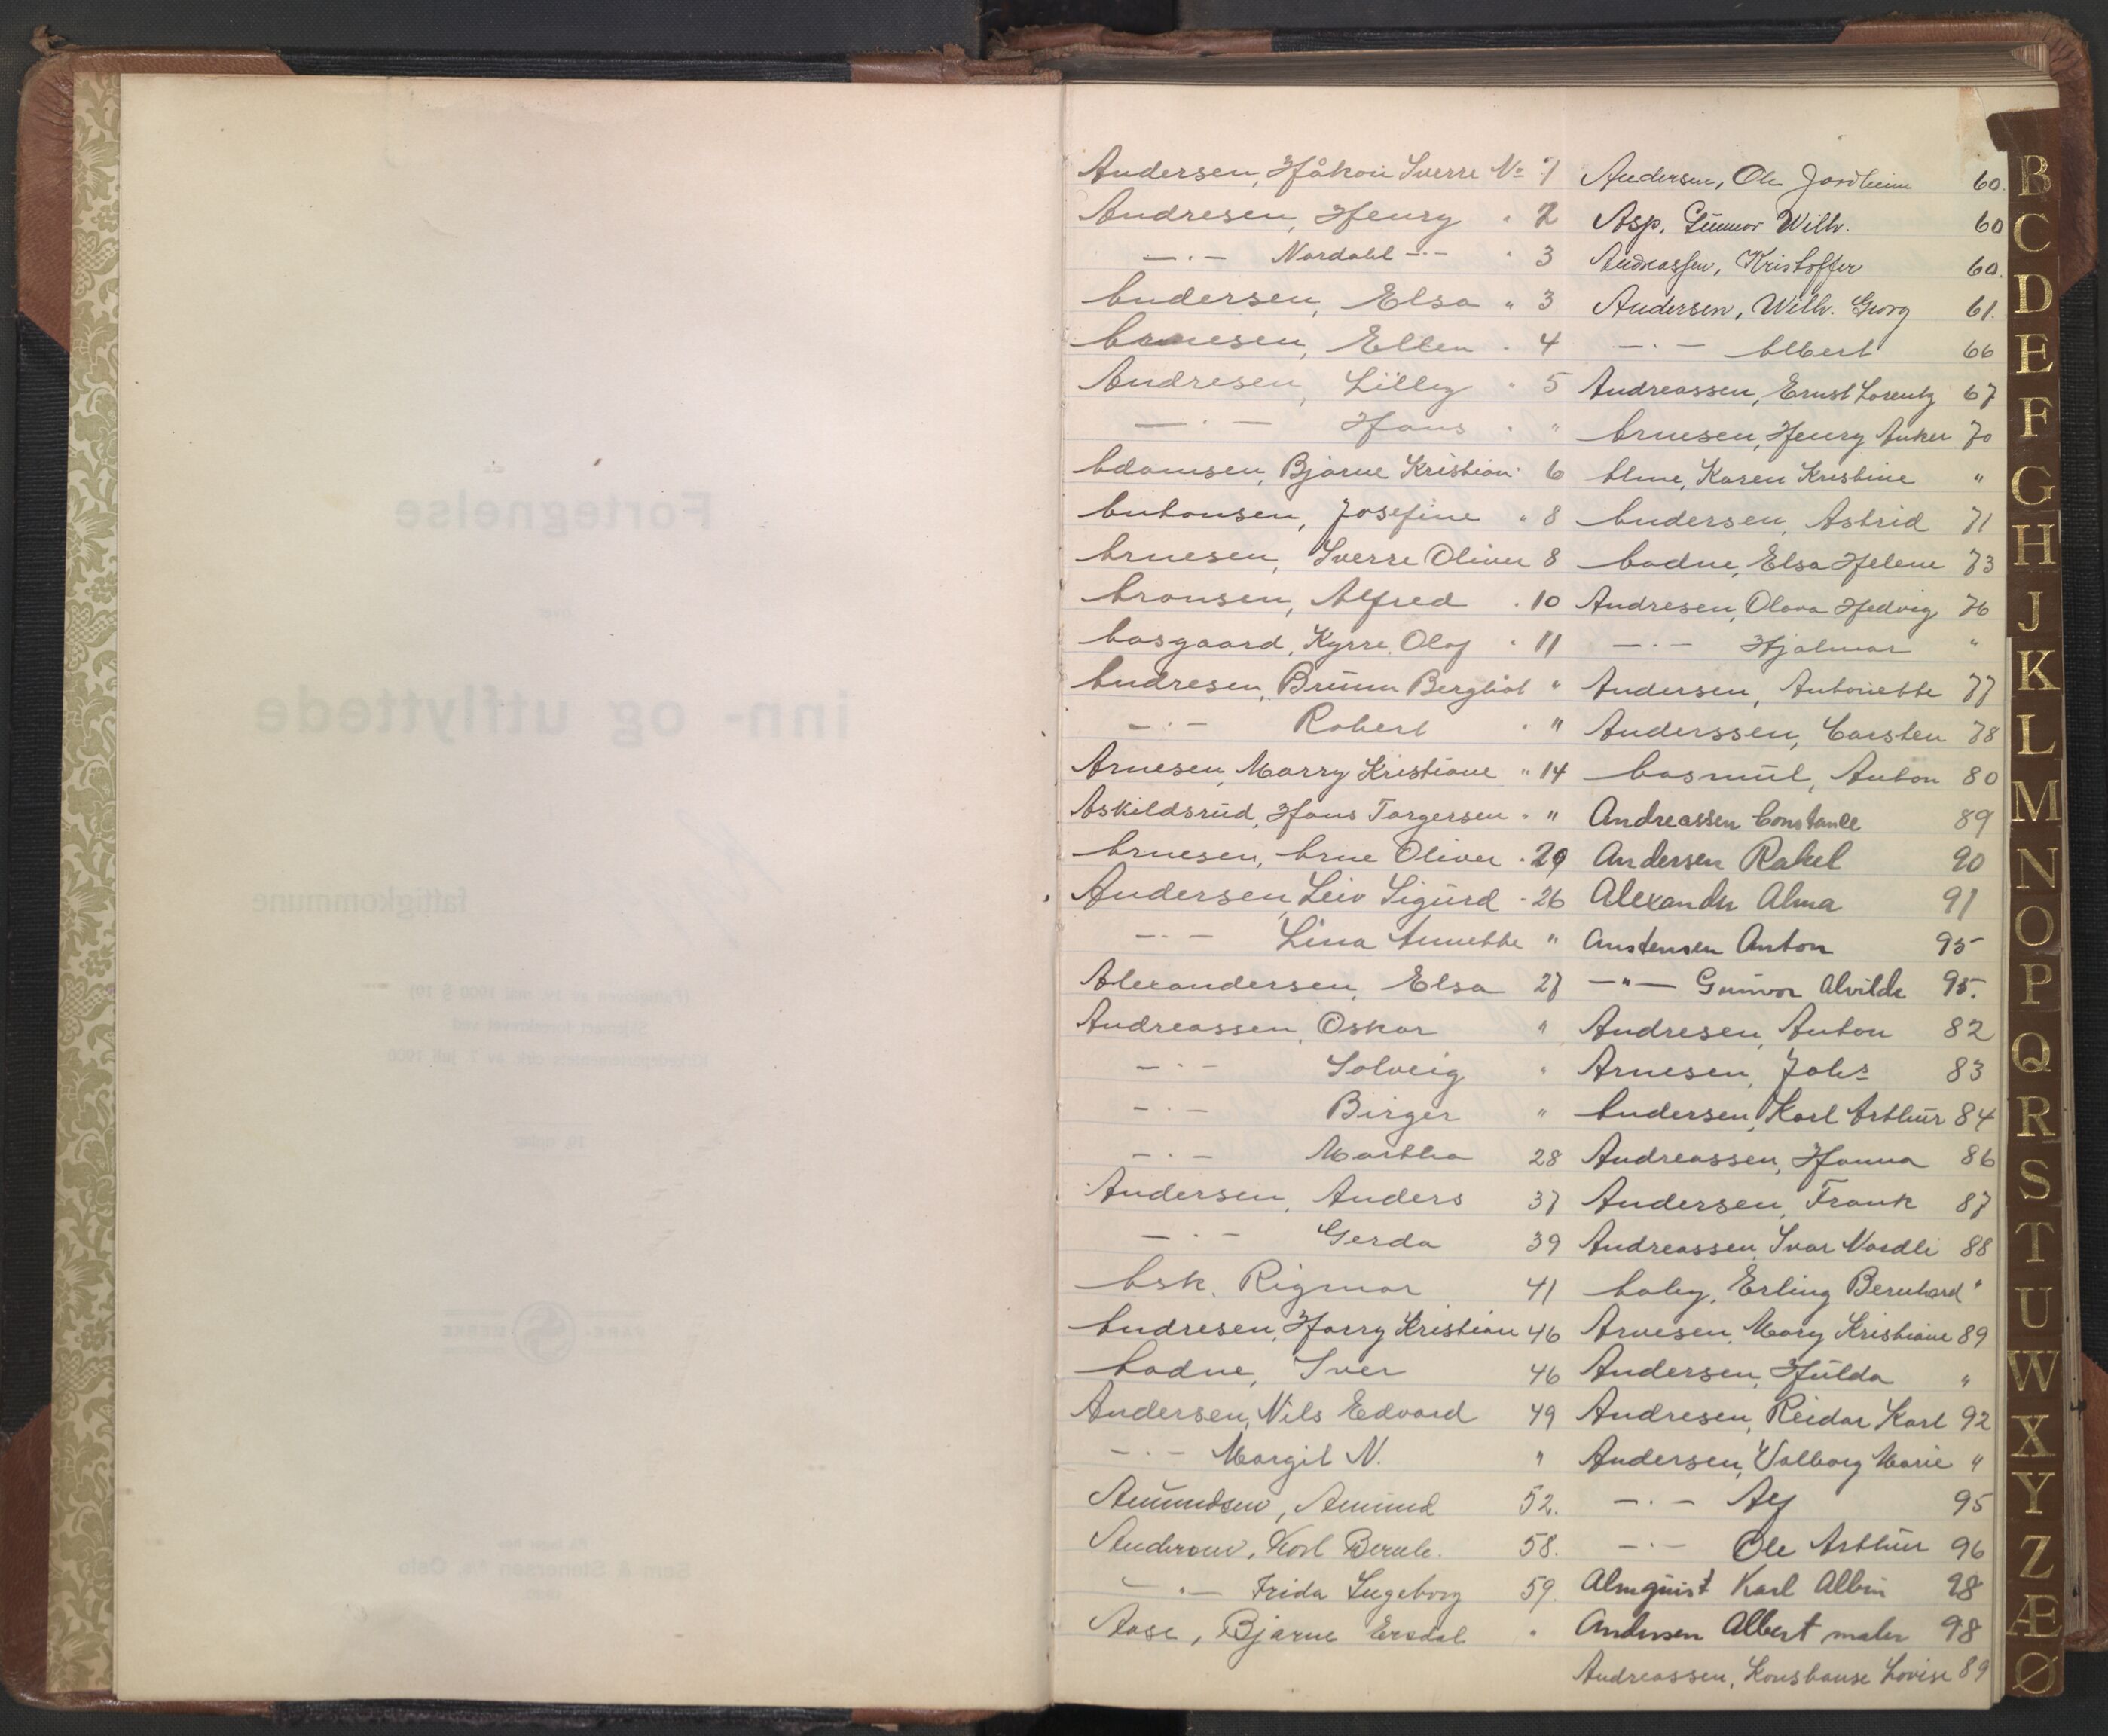 Fortegnelse
over
inn- og utflyttede
fattigkommune
Andersen, Håkon Sverre No 1
Andresen, Henry " 2
— · — Nordahl — · — " 3
Andersen, Elsa " 3
Arnesen, Ellen " 4
Andresen, Lilly " 5
— · — Hans " "
Adamsen, Bjarne Kristian " 6
Antonsen, Josefine " 8
Arnesen, Sverre Oliver 8
Aronsen, Alfred " 10
Aasgaard, Kyrre Olaf " 11
Andresen, Brunn Bergliot "
— · — Robert " "
Arnesen, Marry Kristiane " 14
Askildsrud, Hans Torgersen " "
Arnesen, Arne Oliver " 20
Andersen, Leiv Sigurd " 26
— · — Lina Annette "
Alexandersen, Elsa 27
Andreassen, Oskar "
— · — Solveig "
— · — Birger "
— · — Martha 28
Andersen, Anders 37
— · — Gerda 39
Ask, Rigmor 41
Andresen, Harry Kristian 46
Aadne, Iver 46
Andersen, Nils Edvard 49
— · — Margit N. "
Amundsen, Amund 52.
Andersen, Karl Bernh. 58.
— " — Frida Ingeborg 59.
Aase, Bjarne Ersdal "
Andersen, Ole Jordheim 60.
Asp, Gunnar Wilh. 60
Andreassen, Kristoffer 60.
Andersen, Wilh. Georg 61.
— · — Albert 66
Andreassen, Ernst Lorentz 67
Arnesen, Henry Anker 70
Alme, Karen Kristine "
Andersen, Astrid 71
Aadne, Elsa Helene 73
Andresen, Olava Hedvig 76
— · — Hjalmar "
Andersen, Antonette 77
Anderssen, Carsten 78
Aasmul, Anton 80
Andreassen Constance 89
Andersen Rakel 90
Alexander Alma 91
Austensen Anton 95
— " — Gunvor Alvilde 95.
Andresen, Anton 82
Arnesen, Johs 83
Andersen, Karl Arthur 84
Andreassen, Hanna 86
Andersen, Frank 87
Andreassen, Ivar Nordli 88
Aaby, Erling Bernhard "
Arnesen, Mary Kristiane 89
Andersen, Hulda "
Andresen, Reidar Karl 92
Andersen, Valborg Marie "
— · — Alf 95
— · — Ole Arthur 96
Almquist Karl Albin 98
Andersen Albert maler 98
Andreassen, Konstanse Lovise 89
B
C
D
E
F
G
H
J
K
L
M
N
O
P
Q
R
S
T
U
W
X
Y
Z
Æ
Ø